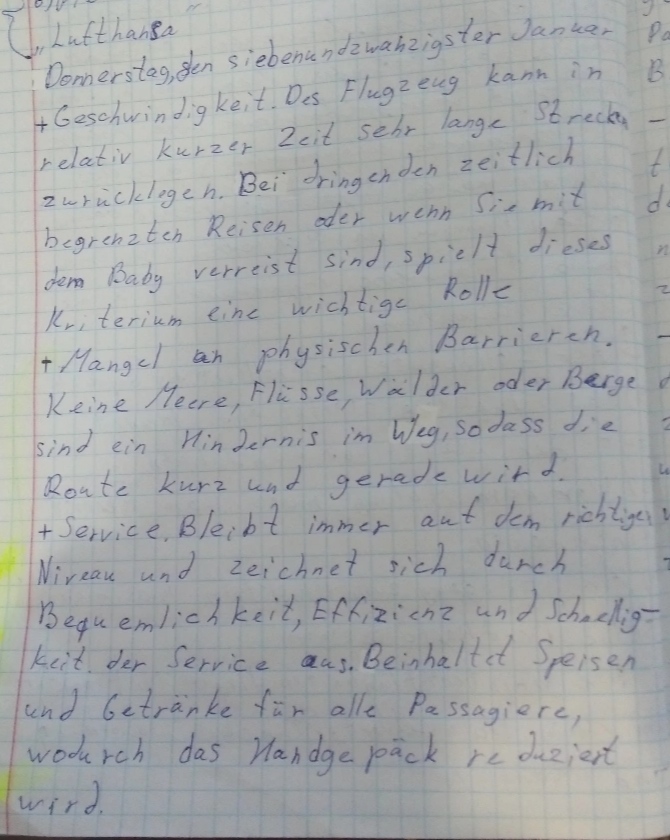 „Lufthansa
Donnerstag, den siebenundzwanzigster Januar
+ Geschwindigkeit. Des Flugzeug kann in
relativ kurzer Zeit sehr lange Strecken
zurücklegen. Bei dringenden zeitlich
begrenzten Reisen oder wenn Sie mit
dem Baby verreist sind, spielt dieses
Kriterium eine wichtige Rolle
+ Mangel an physischen Barrieren.
Keine Meere, Flüsse, Wälder oder Berge
sind ein Hindernis im Weg, sodass die
Route kurz und gerade wird.
+ Service. Bleibt immer auf dem richtigen
Niveau und zeichnet sich durch
Bequemlichkeit, Effizienz und Schnellig-
keit der Service aus. Beinhaltet Speisen
und Getränke für alle Passagiere,
wodurch das Handgepäck reduziert
wird.